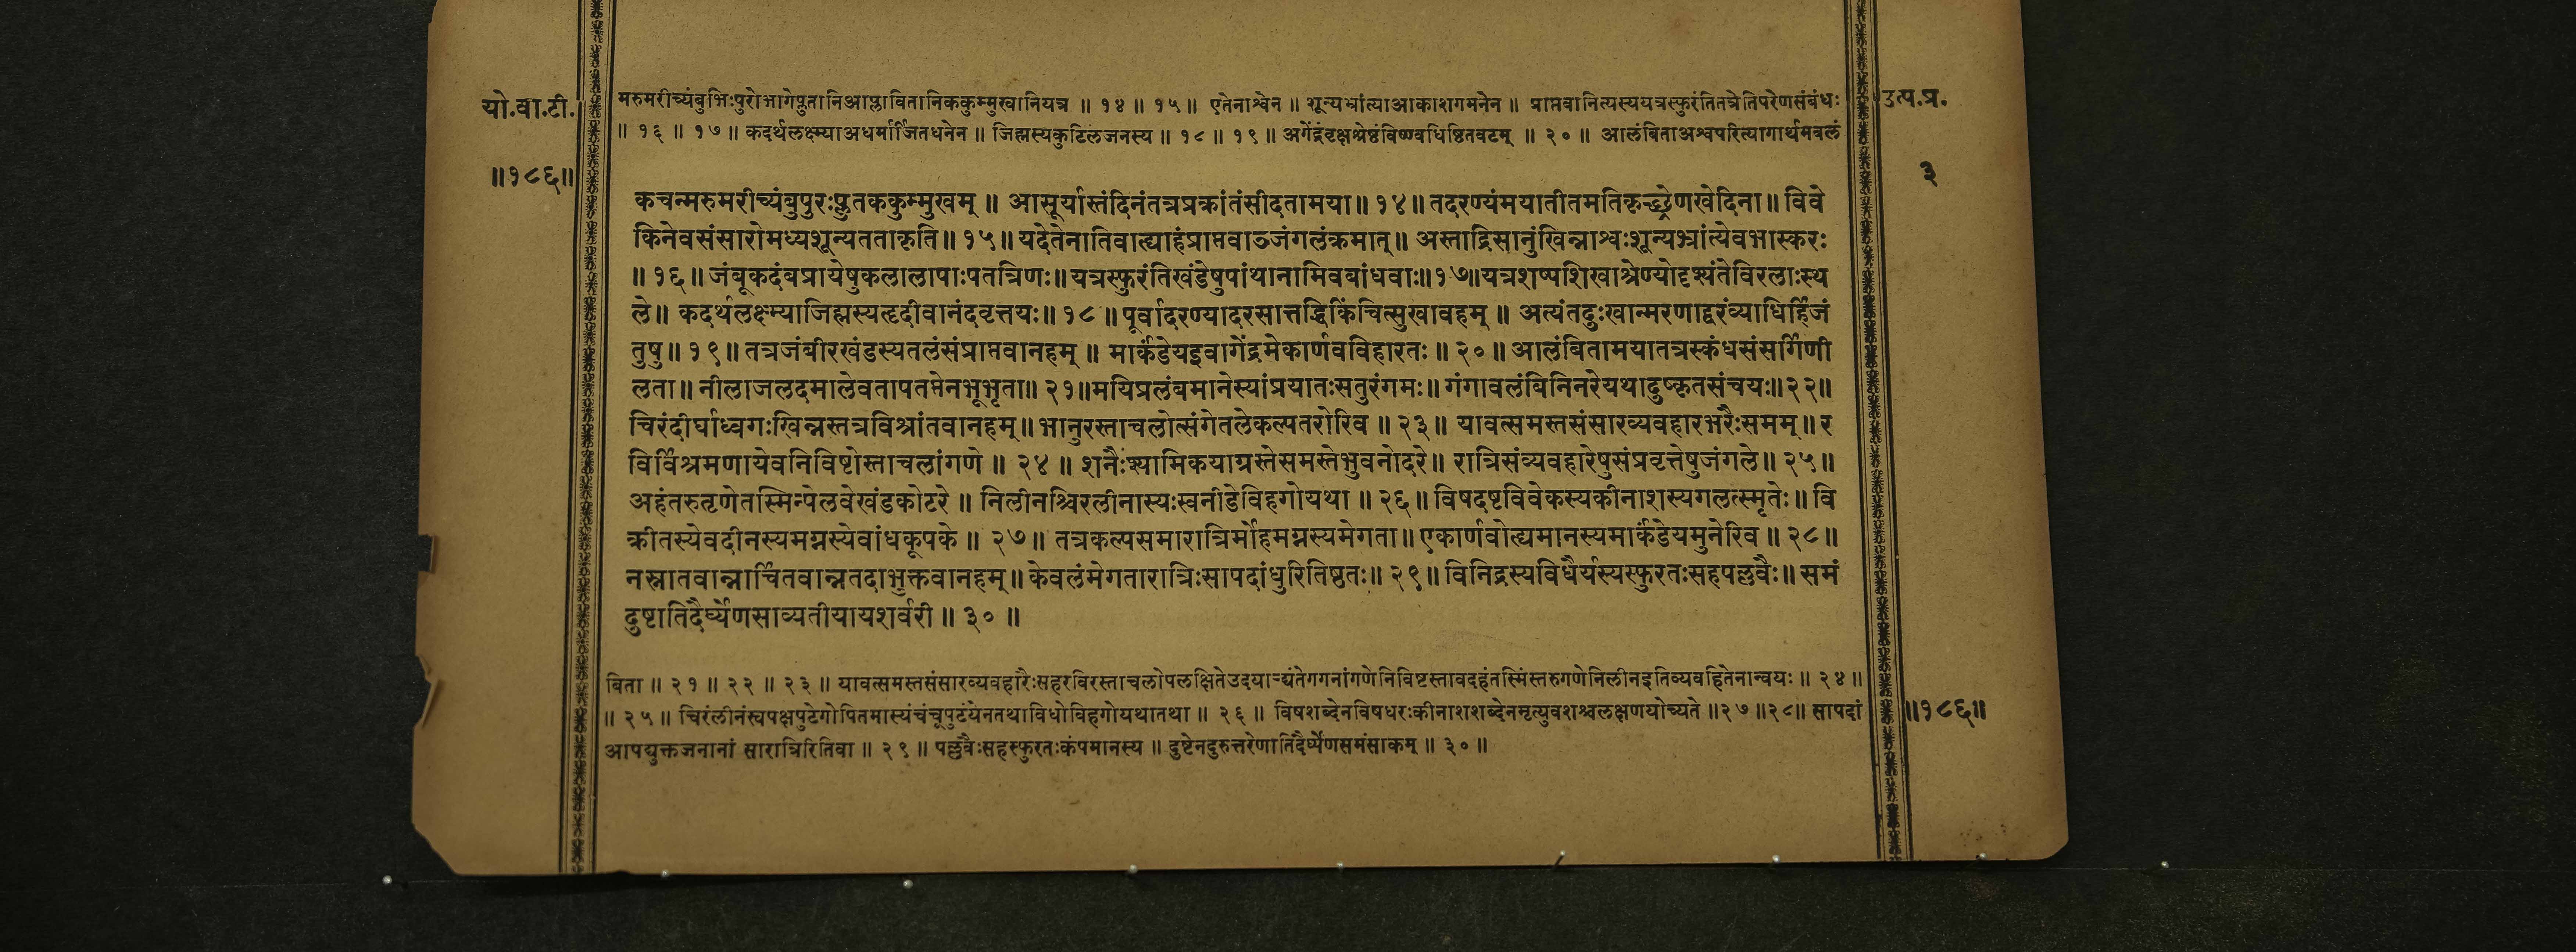 यो.वा.टी.
॥१८६॥
मरुमरीच्यंबुभिःपुरोभागेप्लुतानिआप्लावितानिककुम्मुखानियत्र ॥ १४ ॥ १५ ॥ एतेनाश्वेन ॥ शून्यभ्रांत्याआकाशगमनेन ॥ प्राप्तवानित्यस्ययत्रस्फुरंतितत्रेतिपरेणसंबंधः
॥ १६ ॥ १७ ॥ कदर्थलक्ष्म्याअधर्मार्जितधनेन ॥ जिह्मस्यकुटिलजनस्य ॥ १८ ॥ १९ ॥ अगेंद्रंवृक्षश्रेष्ठंविष्ण्वधिष्ठितवटम् ॥ २० ॥ आलंबिताअश्वपरित्यागार्थमवलं
उत्प.प्र.
३
कचन्मरुमरीच्यंबुपुरःप्लुतककुम्मुखम् ॥ आसूर्यास्तंदिनंतत्रप्रक्रांतंसीदतामया ॥ १४ ॥ तदरण्यंमयातीतमतिकृच्छ्रेणखेदिना ॥ विवे
किनेवसंसारोमध्यशून्यतताकृति ॥ १५ ॥ यदेतेनातिवात्याहंप्राप्तवाञ्जंगलंक्रमात् ॥ अस्ताद्रिसानुंखिन्नाश्वःशून्यभ्रांत्येवभास्करः
॥ १६ ॥ जंबूकदंबप्रायेषुकलालापाःपतत्रिणः ॥ यत्रस्फुरंतिखंडेषुपांथानामिवबांधवाः ॥ १७ ॥ यत्रशष्पशिखाश्रेण्योदृश्यंतेविरलाःस्थ
ले ॥ कदर्थलक्ष्म्याजिह्मस्यहृदीवानंदवृत्तयः ॥ १८ ॥ पूर्वादरण्यादरसात्तद्धिकिंचित्सुखावहम् ॥ अत्यंतदुःखान्मरणाद्वरंव्याधिर्हिजं
तुषु ॥ १९ ॥ तत्रजंबीरखंडस्यतलंसंप्राप्तवानहम् ॥ मार्कंडेयइवागेंद्रमेकार्णवविहारतः ॥ २० ॥ आलंबितामयातत्रस्कंधसंसर्गिणी
लता ॥ नीलाजलदमालेवतापतप्तेनभूभृता ॥ २१ ॥ मयिप्रलंबमानेस्यांप्रयातःसतुरंगमः ॥ गंगावलंबिनिनरेयथादुष्कृतसंचयः ॥ २२ ॥
चिरंदीर्घाध्वगःखिन्नस्तत्रविश्रांतवानहम् ॥ भानुरस्ताचलोत्संगेतलेकल्पतरोरिव ॥ २३ ॥ यावत्समस्तसंसारव्यवहारभरैःसमम् ॥ र
विर्विश्रमणायेवनिविष्टोस्ताचलांगणे ॥ २४ ॥ शनैःश्यामिकयाग्रस्तेसमस्तेभुवनोदरे ॥ रात्रिसंव्यवहारेषुसंप्रवृत्तेषुजंगले ॥ २५ ॥
अहंतरुतृणेतस्मिन्पेलवेखंडकोटरे ॥ निलीनश्चिरलीनास्यःस्वनीडेविहगोयथा ॥ २६ ॥ विषदष्टविवेकस्यकीनाशस्यगलत्स्मृतेः ॥ वि
क्रीतस्येवदीनस्यमग्नस्येवांधकूपके ॥ २७ ॥ तत्रकल्पसमारात्रिर्मोहमग्नस्यमेगता ॥ एकार्णवोह्यमानस्यमार्कंडेयमुनेरिव ॥ २८ ॥
नस्नातवान्नार्चितवान्नतदाभुक्तवानहम् ॥ केवलंमेगतारात्रिःसापदांधुरितिष्ठतः ॥ २९ ॥ विनिद्रस्यविधैर्यस्यस्फुरतःसहपल्लवैः ॥ समं
दुष्टातिदैर्घ्येणसाव्यतीयायशर्वरी ॥ ३० ॥
बिता ॥ २१ ॥ २२ ॥ २३ ॥ यावत्समस्तसंसारव्यवहारैःसहरविरस्ताचलोपलक्षितेउदयाच्यंतेगगनांगणेनिविष्टस्तावदहंतस्मिंस्तरुगणेनिलीनइतिव्यवहितेनान्वयः ॥ २४ ॥
॥ २५ ॥ चिरंलीनंस्वपक्षपुटेगोपितमास्यंचंचूपुटंयेनतथाविधोविहगोयथातथा ॥ २६ ॥ विषशब्देनविषधरःकीनाशशब्देनमृत्युवशश्वलक्षणयोच्यते ॥ २७ ॥ २८ ॥ सापदां
आपद्युक्तजनानां सारात्रिरितिवा ॥ २९ ॥ पल्लवैःसहस्फुरतःकंपमानस्य ॥ दुष्टेनदुरुत्तरेणातिदैर्घ्येणसमंसाकम् ॥ ३० ॥
॥१८६॥